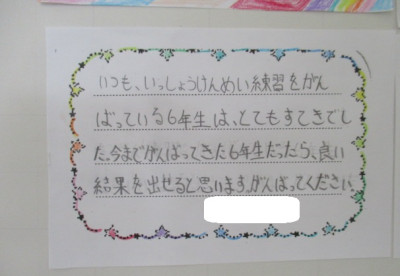 いつも、いっしょうけんめい練習をがん
ばっている6年生は、とてもすてきでし
た。今までがんばってきた6年生だったら、良い
結果を出せると思います。がんばってください。